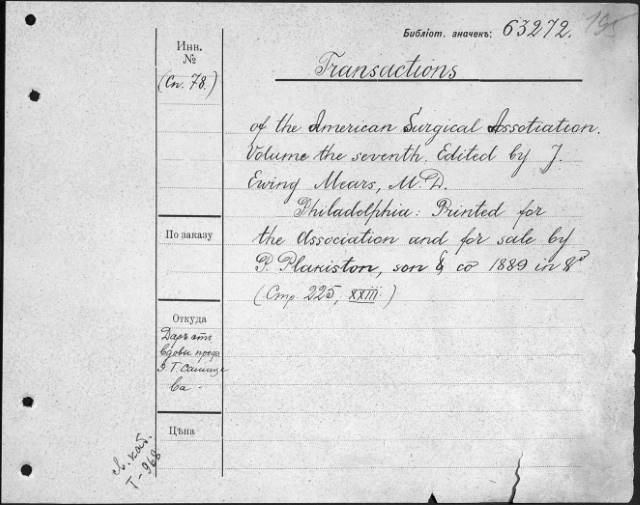 Библіот. значекъ: 63272.
195
Инн.
№
(Сп. 78.)
Transactions
of the American Surgical Assotiation.
Volume the seventh. Edited by J.
Ewing Mears, M.D.
Philadelphia: Printed for
the Association and for sale by
P. Plakiston, son & co 1889 in 8º
(Стр. 225, XXIII.)
По заказу
Откуда
Даръ отъ
вдовы проф.
Цѣна
Т-968